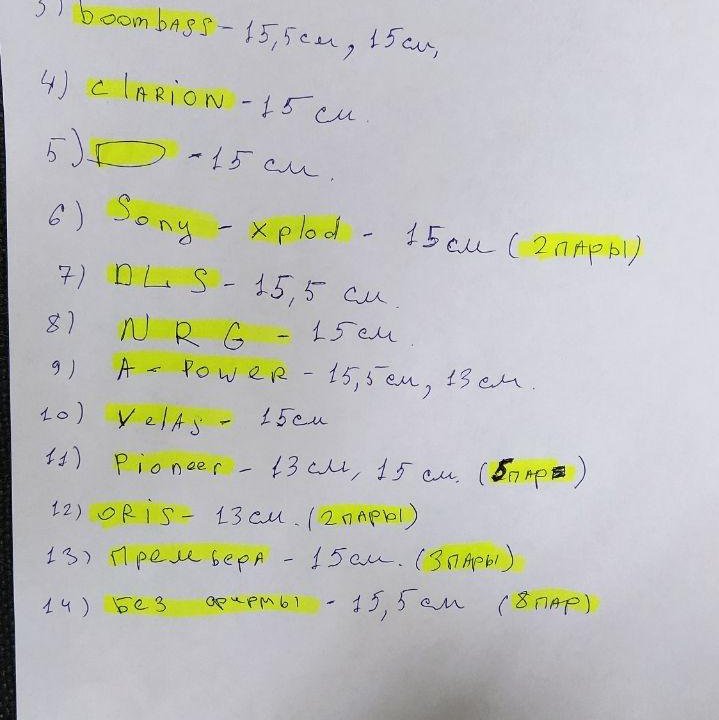 3) boombass - 15,5см, 15см,
4) CLARION - 15 см.
5) - 15 см.
6) Sony - xplod - 15см (2ПАРЫ)
7) DLS - 15,5 см.
8) NRG - 15см.
9) A-POWER - 15,5см, 13см.
10) VelAs - 15см
11) Pioneer - 13см, 15см. (5ПАР)
12) ORIS - 13см. (2ПАРЫ)
13) ПремьЕРА - 15см. (3ПАРЫ)
14) БЕЗ фирмы - 15,5см (8ПАР)